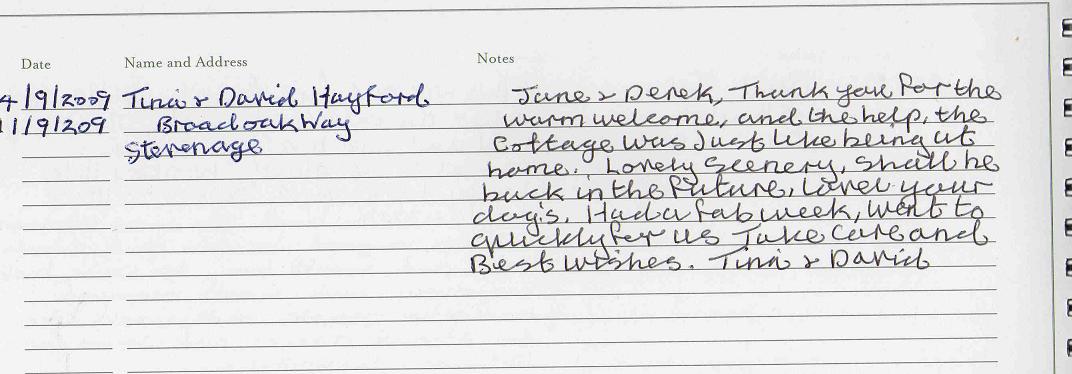 Date Name and Address Notes
4/9/2009 Tina & David Hayford June & Derek, Thank you for the
11/9/209 Broadoak Way warm welcome, and the help, the
Stevenage Cottage was Just like being at
home. Lovely Scenery, shall be
back in the future, Lovel your
dog's. Had a fab week, went to
quickly for us Take care and
Best wishes. Tina & David